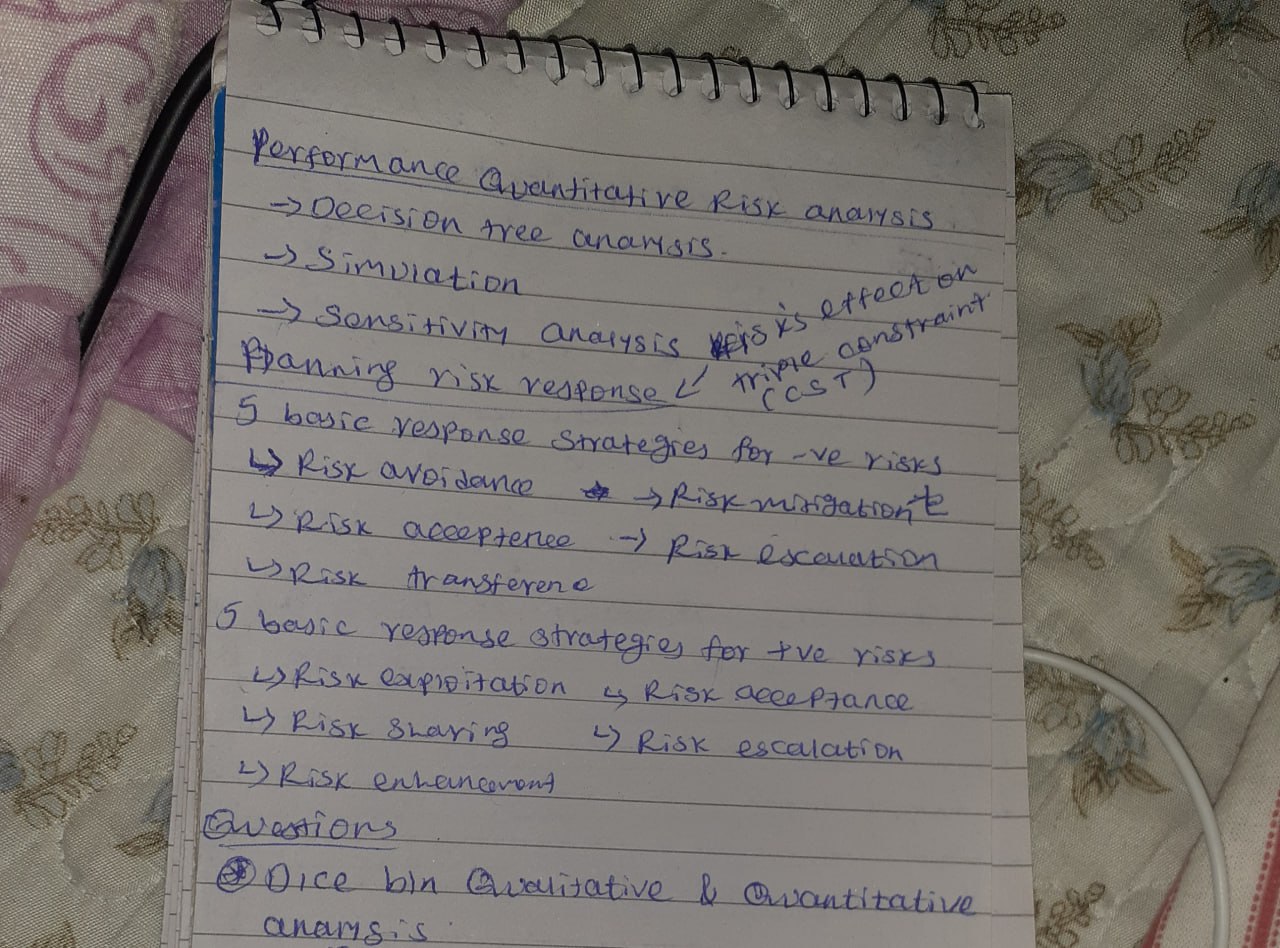 Performance Quantitative Risk analysis
→ Decision tree analysis.
→ Simulation
→ Sensitivity analysis
risks effect on
triple constraint
(CST)
Planning risk response ↙
5 basic response strategies for -ve risks
↳ Risk avoidance → Risk mitigation
↳ Risk acceptence → Risk escalation
↳ Risk transferene
5 basic response strategies for +ve risks
↳ Risk exploitation ↳ Risk acceptance
↳ Risk sharing ↳ Risk escalation
↳ Risk enhancement
Questions
Dice b/n Qualitative & Quantitative
analysis.